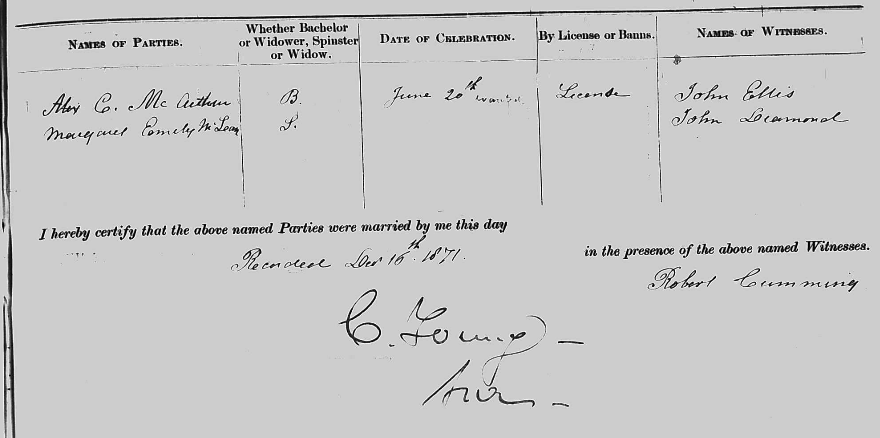 NAMES OF PARTIES. Whether Bachelor or Widower, Spinster or Widow. DATE OF CELEBRATION. By License or Banns. NAMES OF WITNESSES.
Alex C. McArthur B. June 20th License John Ellis
Margaret Emily McLean S. John Deamond
I hereby certify that the above named Parties were married by me this day
in the presence of the above named Witnesses.
Recorded Dec 16th 1871.
Robert Cumming
C. Young